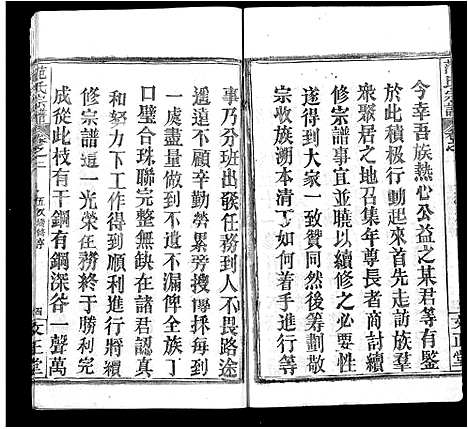 范氏宗譜
今幸吾族熱心公益之某君等有鑒
於此積極行動起來首先走訪族羣
衆聚居之地召集年長者商討續
修宗譜事宜並曉以續修之必要性
遂得到大家一致贊同然後籌劃敬
宗收族溯本清了宗如何着手進行等
文正堂
事乃分班出發任務到人不畏路途
遥遠不顧辛勤勞累旁搜博採每到
一處盡量做到不遺不漏俾全族丁
口璧合珠聯完整無缺在諸君認真
和努力下工作得到順利進行將續
修宗譜這一光榮任務終于勝利完
成從此枝有干鋼有鋼深谷一聲萬
范氏宗譜
文正堂